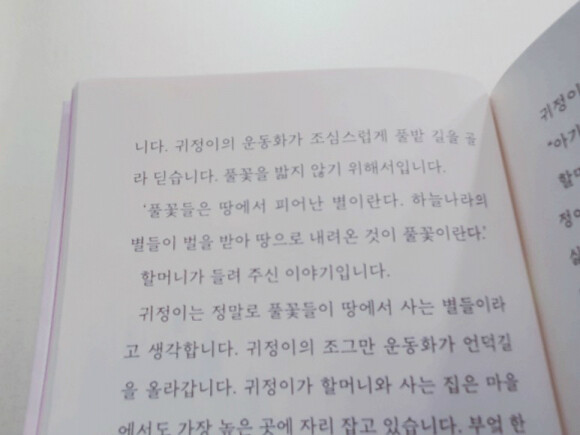 니다. 귀정이의 운동화가 조심스럽게 풀밭 길을 골
라 딛습니다. 풀꽃을 밟지 않기 위해서입니다.
'풀꽃들은 땅에서 피어난 별이란다. 하늘나라의
별들이 벌을 받아 땅으로 내려온 것이 풀꽃이란다.'
할머니가 들려 주신 이야기입니다.
귀정이는 정말로 풀꽃들이 땅에서 사는 별들이라
고 생각합니다. 귀정이의 조그만 운동화가 언덕길
을 올라갑니다. 귀정이가 할머니와 사는 집은 마을
에서도 가장 높은 곳에 자리 잡고 있습니다. 부엌 한
귀정이
"아기
할머
정이